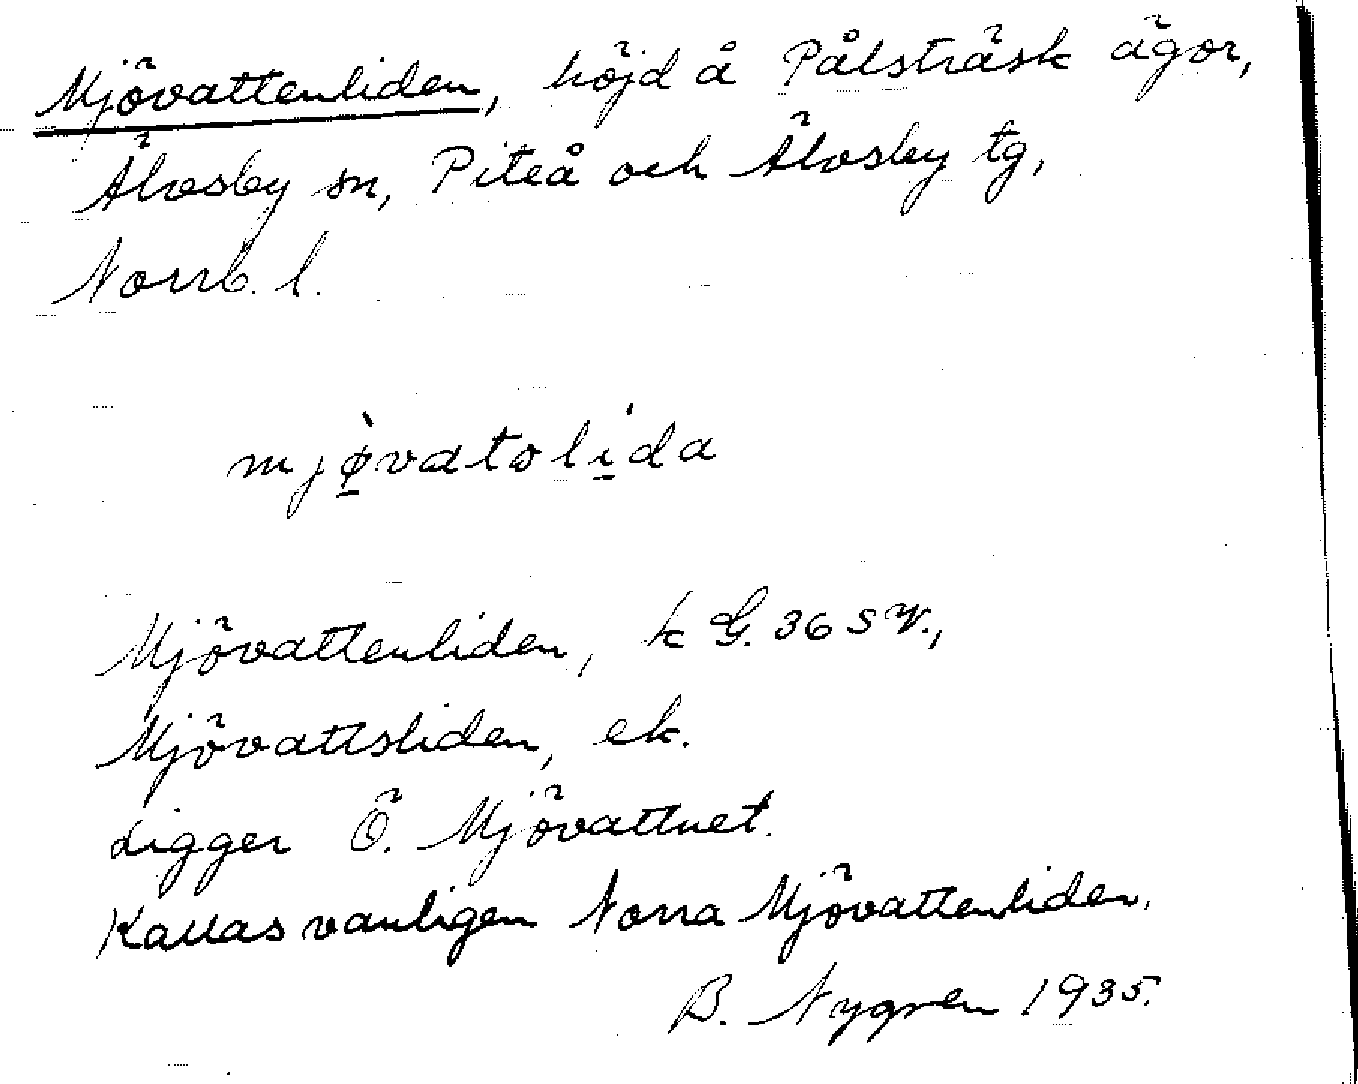 Mjövattenliden, höjd å Pålsträsk ägor,
Älvsby sn, Piteå och Älvsby tg,
Norrb. l.
mjø̀vatəlída
Mjövattenliden, k G. 36 SV.,
Mjövattsliden, ek.
Ligger Ö. Mjövattnet.
Kallas vanligen Norra Mjövattenliden.
B. Nygren 1935.